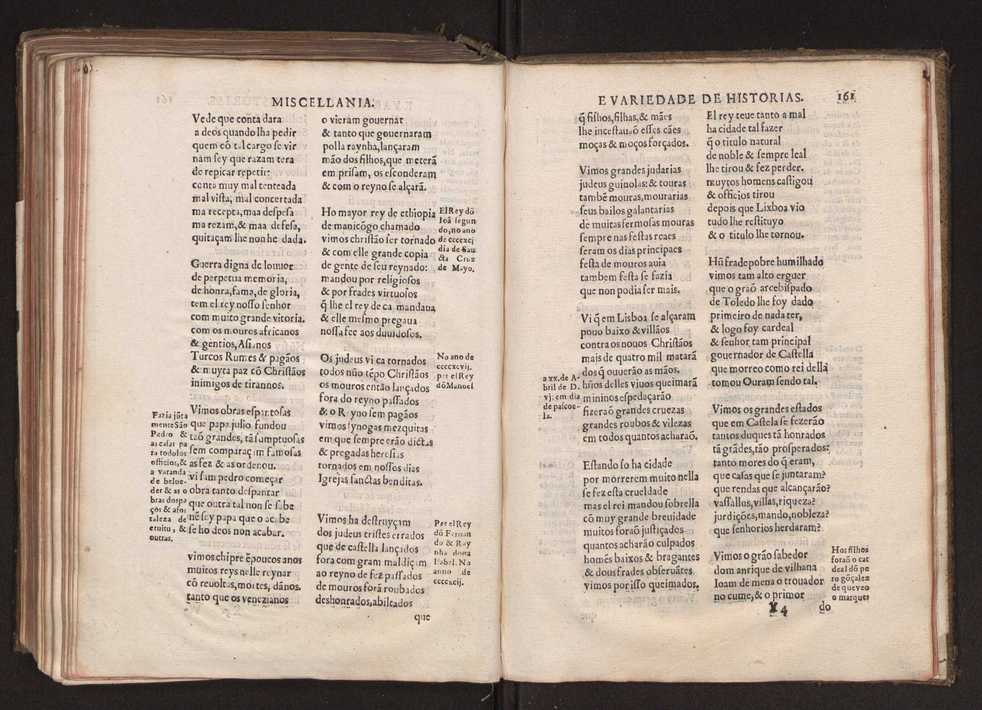 MISCELLANIA.
Vede que conta dara
a deos quando lha pedir
quem cõ tal cargo se vir
nam sey que razam tera
de repicar repetir:
conta muy mal tenteada
mal vista, mal concertada
ma recepta, maa despesa
ma rezam, & maa defesa,
quitaçam lhe non he dada.
Guerra digna de louuor
de perpetua memoria,
de honra, fama, de gloria,
tem el rey nosso senhor
com muito grande vitoria.
com os mouros africanos
& gentios, Asianos
Turcos Rumes & pagãos
& muyta paz cõ Christãos
inimigos de tirannos.
Vimos obras espantosas
que papa julio fundou
taõ grandes, tã sumptuosas
sem comparaçam famosas
as fez & as ordenou.
vi sam pedro começar
obra tanto despantar
que outra tal non se sabe
nẽ sey papa que o acabe
se ho deos non acabar.
Fazia jũta
mente São
Pedro &
as casas pa
ra todolos
officios, &
a varanda
de belue-
der & as o
bras dos pa
ços & afor
taleza de
eruitu, &
outras.
vimos chipre ẽ poucos anos
muitos reys nelle reynar
cõ reuoltas, mortes, dãnos.
tanto que os venezianos
o vieram gouernar
& tanto que gouernaram
polla raynha, lançaram
mão dos filhos, que meterã
em prisam, os esconderam
& com o reyno se alçarã.
Ho mayor rey de ethiopia
de manicõgo chamado
vimos christão ser tornado
& com elle grande copia
de gente de seu reynado:
mandou por religiosos
& por frades virtuosos
q̃ lhe el rey de ca mandaua
& elle mesmo pregaua
nossa fee aos duuidosos.
El Rey dõ
Ioã segun
do, no ano
de ccccxcj
dia de San
cta Cruz
de Mayo.
Os judeus vi ca tornados
todos nũo tẽpo Christãos
os mouros então lançados
fora do reyno passados
& o Reyno sem pagãos
vimos synogas mezquitas
em que sempre erão dictas
& pregadas heresias
tornados em nossos dias
Igrejas sanctas benditas.
No ano de
ccccxcvij.
per el Rey
dõ Manoel
Vimos ha destruyçam
dos judeus tristes errados
que de castella lançados
fora com gram maldiçam
ao reyno de fez passados
de mouros forã roubados
deshonrados, abiltados
Per el Rey
dõ Fernan
do & Ray
nha dona
Isabel. No
anno de
ccccxcij.
que
E VARIEDADE DE HISTORIAS.
161
q̃ filhos, filhas, & mães
lhe incestauaõ esses cães
moças & moços forçados.
Vimos grandes judarias
judeus guinolas: & touras
tambẽ mouras, mourarias
seus bailos galantarias
de muitas fermosas mouras
sempre nas festas reaes
seram os dias principaes
festa de mouros auia
tambem festa se fazia
que non podia ser mais.
Vi q̃ em Lisboa se alçaram
pouo baixo & villãos
contra os nouos Christãos
mais de quatro mil matarã
dos q̃ ouuerão as mãos.
hũos delles viuos queimarã
mininos espedaçarão
fizeraõ grandes cruezas
grandes roubos & vilezas
em todos quantos acharaõ.
a xx. de A-
bril de D.
vj: em dia
de pascoe-
la.
Estando so ha cidade
por morrerem muito nella
se fez esta crueldade
mas el rei mandou sobrella
cõ muy grande breuidade
muitos foraõ justiçados
quantos acharão culpados
homẽs baixos & bragantes
& dous frades obseruãtes
vimos por isso queimados.
El rey teue tanto a mal
ha cidade tal fazer
q̃ o titulo natural
de noble & sempre leal
lhe tirou & fez perder.
muytos homens castigou
& officios tirou
depois que Lixboa vio
tudo lhe restituyo
& o titulo lhe tornou.
Hũ frade pobre humilhado
vimos tam alto erguer
que o graõ arcebispado
de Toledo lhe foy dado
primeiro de nada ter,
& logo foy cardeal
& senhor tam principal
gouernador de Castella
que morreo como rei della
tomou Ouram sendo tal.
Vimos os grandes estados
que em Castela se fezerão
tantos duques tã honrados
tã grãdes, tão prosperados:
tanto mores do q̃ eram,
que casas que se juntaram?
que rendas que alcançarão?
vassallos, villas, riqueza?
jurdições, mando, nobleza?
que senhorios herdaram?
Vimos o grão sabedor
dom anrique de vilhana
Ioam de mena o trouador
no cume, & o primor
Hos filhos
foraõ o car
deal dõ pe
ro gõçalez
de que veo
o marques
X 4
do